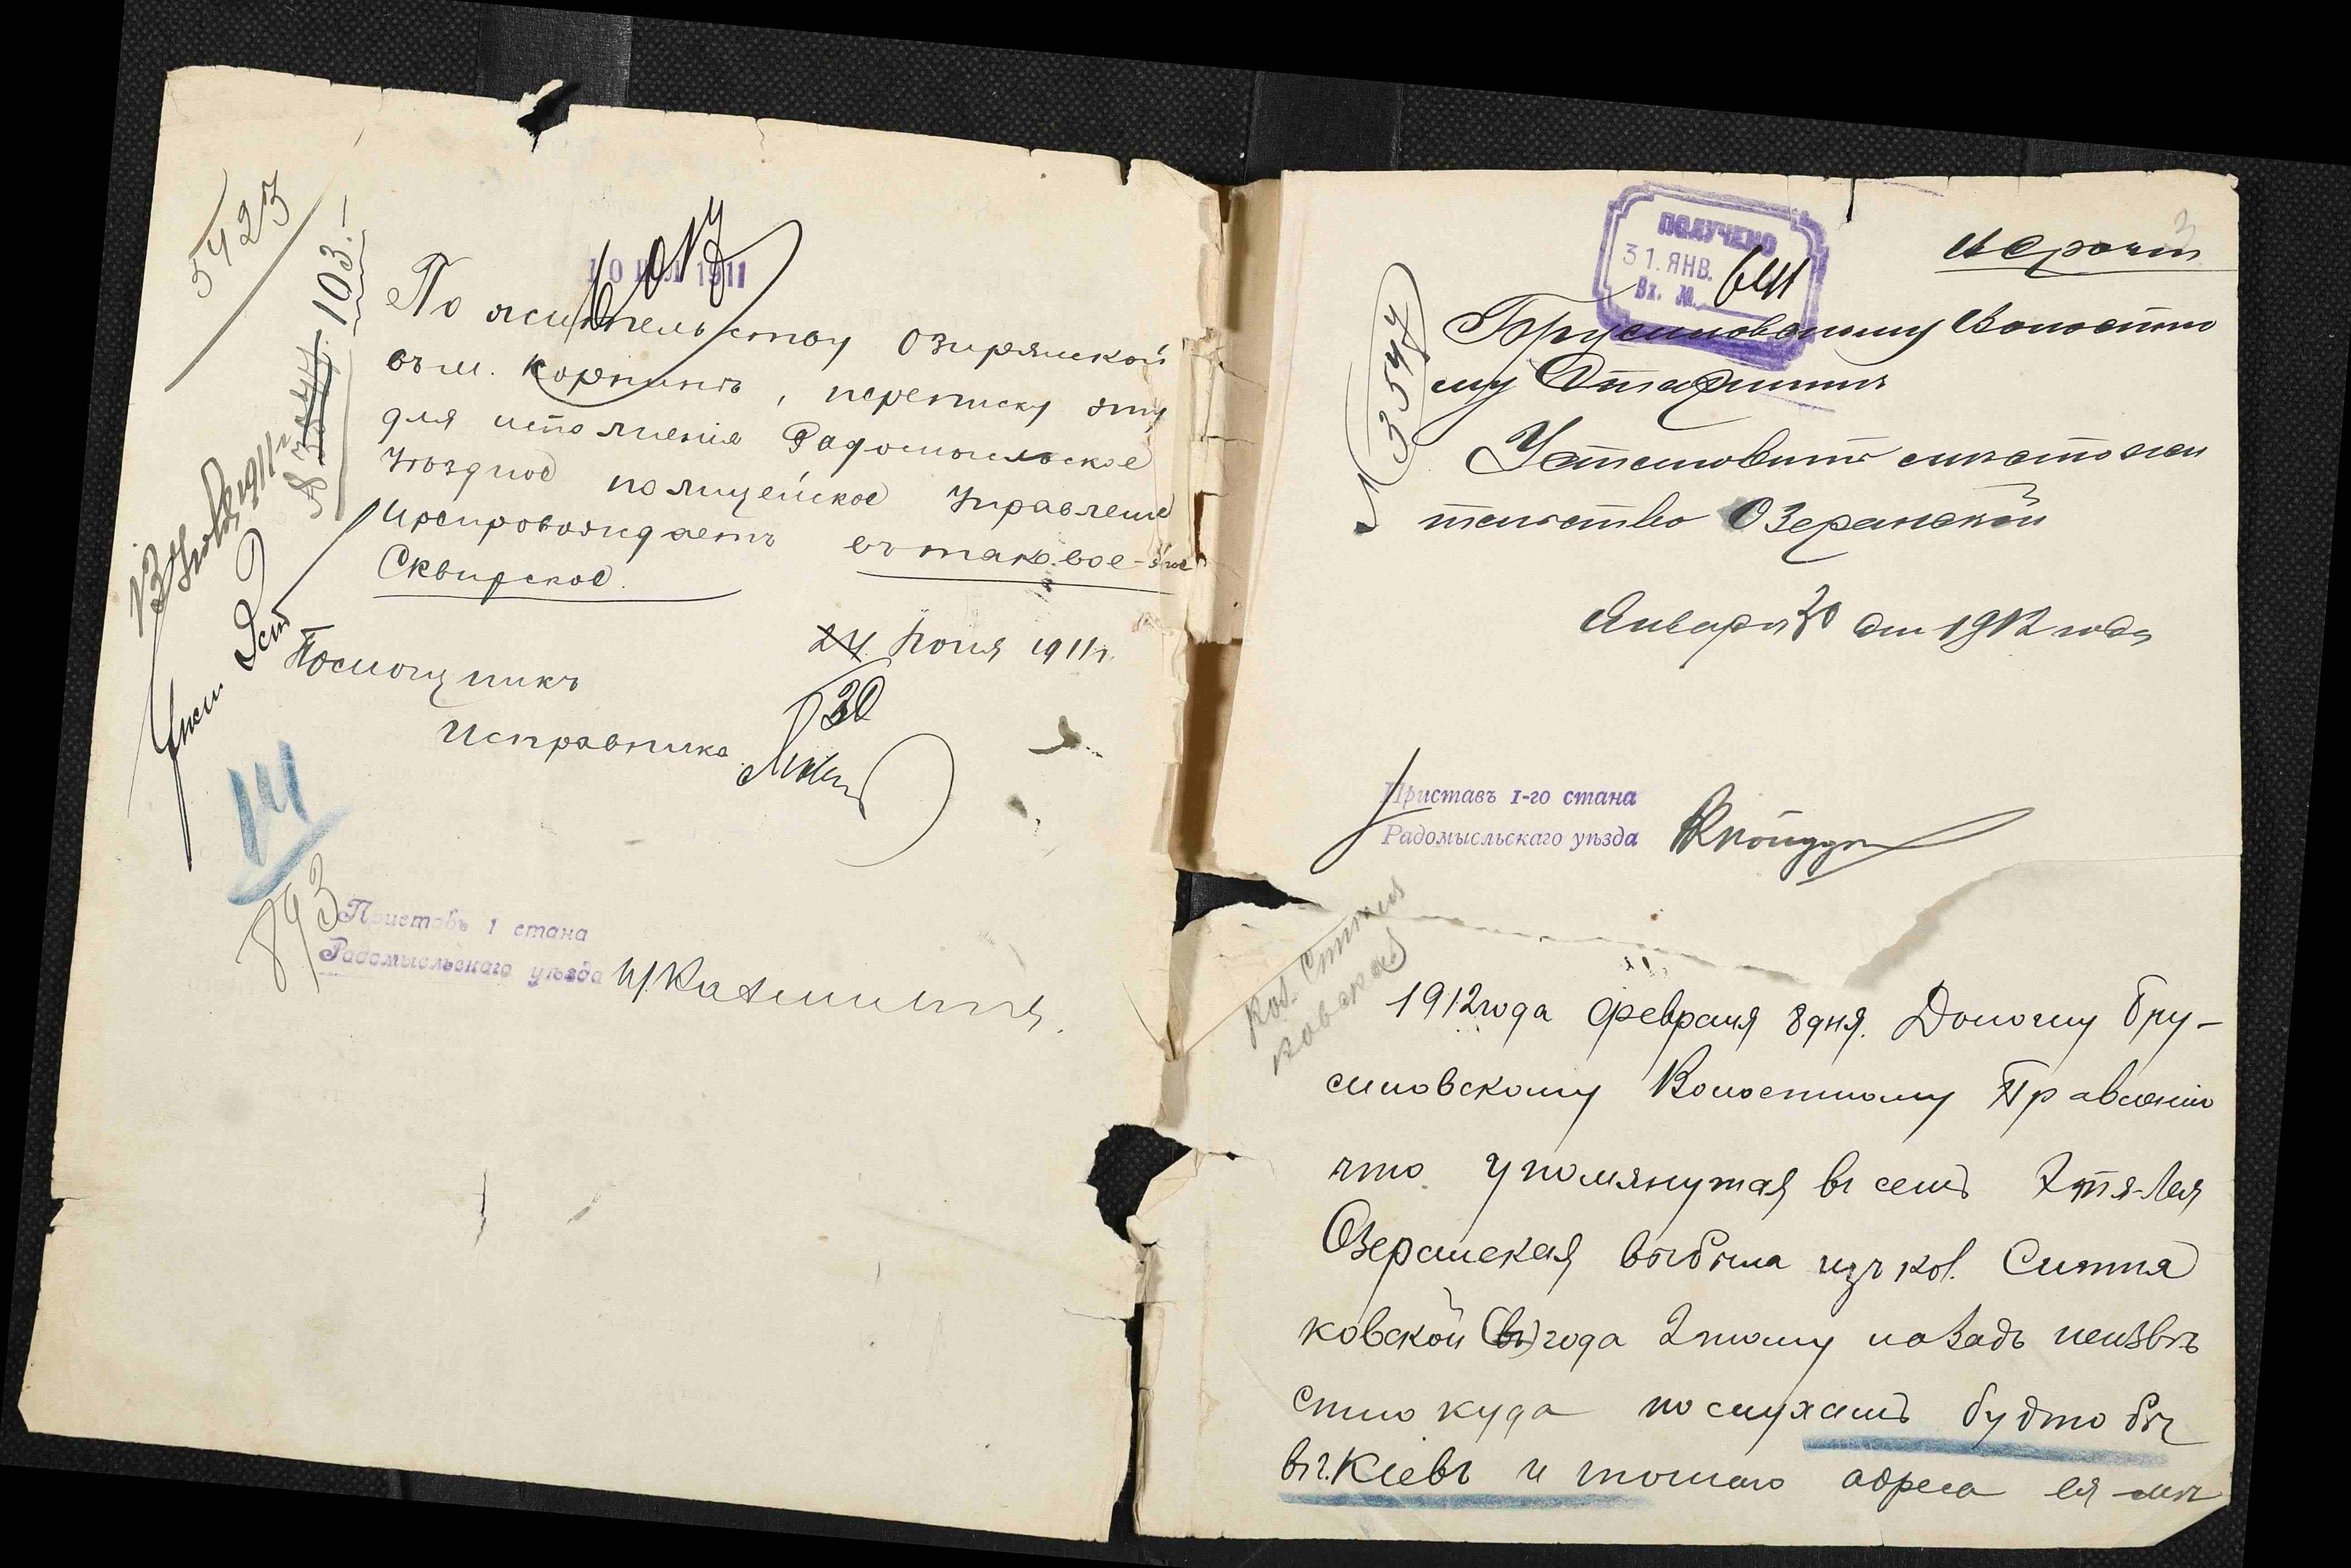 5423
103.
10 ИЮЛ 1911
По жительству Озирянской
въ м. Корнинъ, переписку эту
для исполненія Радомысльское
Уѣздное полицейское Управленіе
препровождаетъ въ таковое-же
Сквирское.
24 Іюня 1911 г.
30
Помощникъ
Исправника
14
893
Приставъ 1 стана
Радомысльскаго уѣзда
3
Срочн
ПОЛУЧЕНО
31. ЯНВ.
Вх. №
641
№ 3544
Брусиловскому Волостно
му Старшинѣ
Установить мѣстожи
тельство Озеранской
Января 30 дня 1912 года
Приставъ 1-го стана
Радомысльскаго уѣзда
кол. Ситня
ковская
1912 года февраля 8 дня. Доношу Бру-
силовскому Волостному Правленію
что упомянутая въ семъ Этя-Лея
Озеранская выбыла изъ кол. Ситня
ковской (въ) года 2 тому назадъ неизвѣ
стно куда по слухамъ будто бы
въ г. Кіевъ и точнаго адреса ея мнѣ